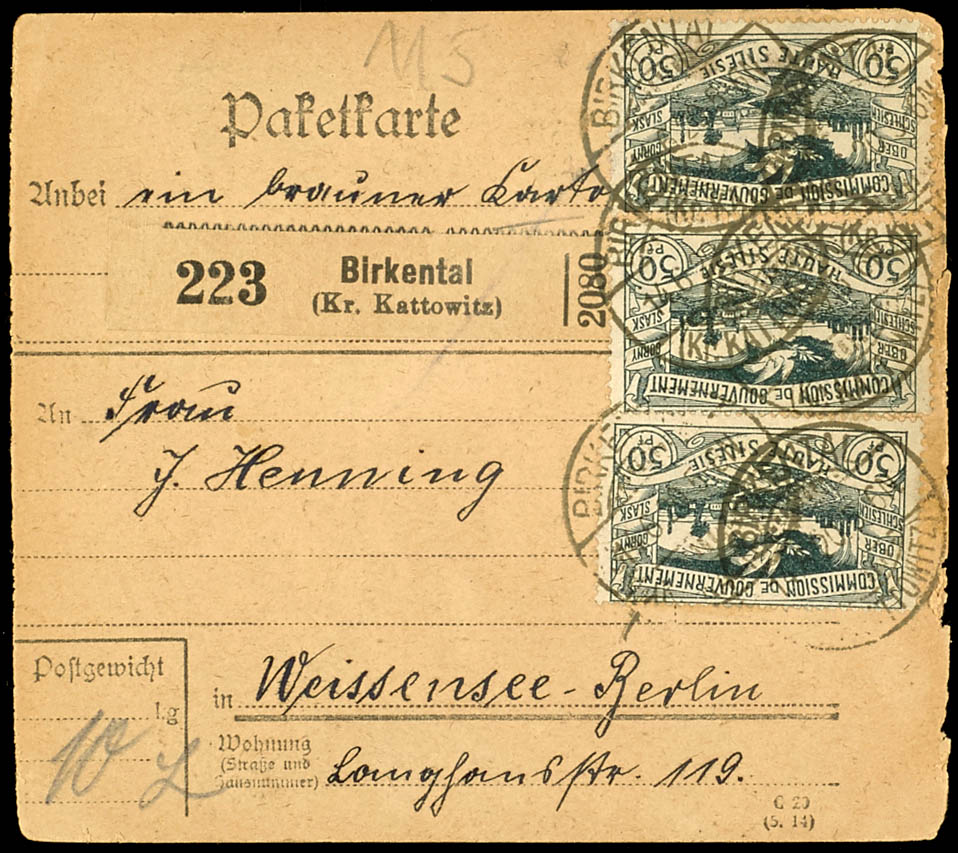 115
Paketkarte
Anbei ein brauner Karto
223 Birkental
(Kr. Kattowitz)
2080
An Frau
J. Henning
Postgewicht
kg
in Weissensee-Berlin
Wohnung
(Straße und
Hausnummer) Langhansstr. 119.
C 20
(5. 14)
50 Pf HAUTE SILESIE 50 Pf
GORNY ŚLĄSK OBER SCHLESIEN
COMMISSION DE GOUVERNEMENT
50 Pf HAUTE SILESIE 50 Pf
GORNY ŚLĄSK OBER SCHLESIEN
COMMISSION DE GOUVERNEMENT
50 Pf HAUTE SILESIE 50 Pf
GORNY ŚLĄSK OBER SCHLESIEN
COMMISSION DE GOUVERNEMENT
BIRKENTAL
(Kr. KATTOWITZ)